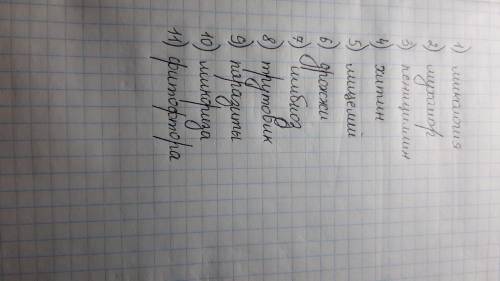 1) микология
2) мухомор
3) пеницилин
4) хитин
5) мицелий
6) дрожжи
7) симбиоз
8) трутовик
9) паразиты
10) микориза
11) фитофтора